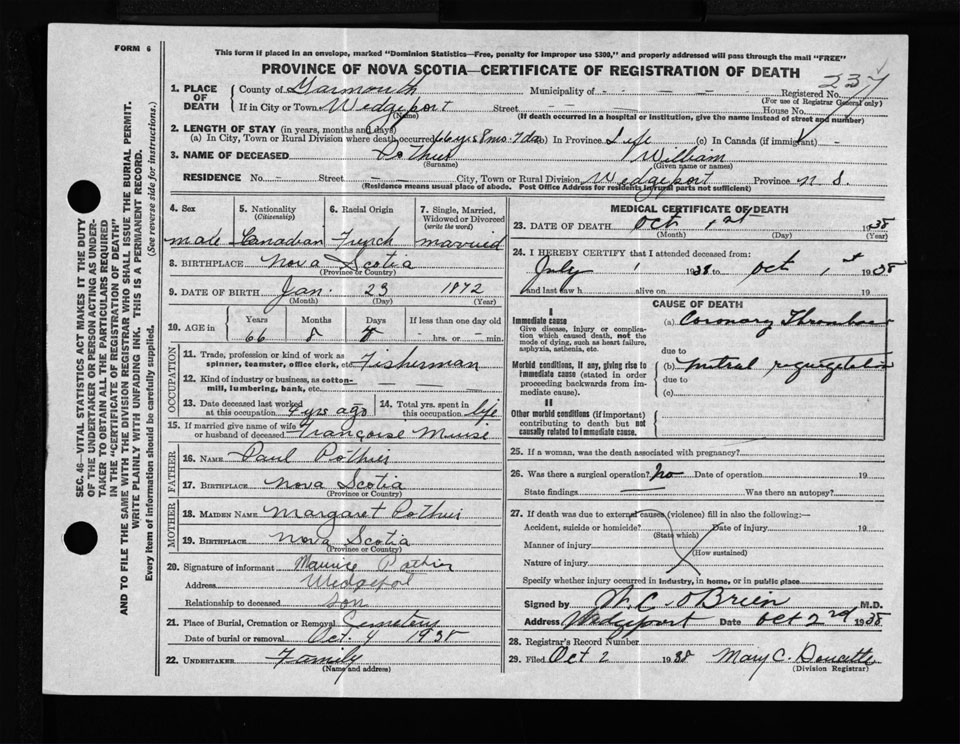 FORM 6
This form if placed in an envelope, marked "Dominion Statistics—Free, penalty for improper use $300," and properly addressed will pass through the mail "FREE"
PROVINCE OF NOVA SCOTIA—CERTIFICATE OF REGISTRATION OF DEATH
237
1. PLACE OF DEATH
County of Yarmouth Municipality of - - - - - Registered No.
(For use of Registrar General only)
If in City or Town Wedgeport Street House No.
(Name) (If death occurred in a hospital or institution, give the name instead of street and number)
2. LENGTH OF STAY (in years, months and days)
(a) In City, Town or Rural Division where death occurred 66 yrs 8 mo. 7 da (b) In Province Life (c) In Canada (if immigrant) -
3. NAME OF DECEASED Pothier William
(Surname) (Given name or names)
RESIDENCE No. - Street - City, Town or Rural Division Wedgeport Province N S.
(Residence means usual place of abode. Post Office Address for residents in rural parts not sufficient)
4. Sex
male
5. Nationality
(Citizenship)
Canadian
6. Racial Origin
French
7. Single, Married, Widowed or Divorced
(write the word)
married
8. BIRTHPLACE Nova Scotia
(Province or Country)
9. DATE OF BIRTH Jan. 23 1872
(Month) (Day) (Year)
10. AGE in
Years Months Days If less than one day old
66 8 hrs. or min.
OCCUPATION
11. Trade, profession or kind of work as spinner, teamster, office clerk, etc. Fisherman
12. Kind of industry or business, as cotton-mill, lumbering, bank, etc.
13. Date deceased last worked at this occupation 4 yrs ago
14. Total yrs. spent in this occupation life
15. If married give name of wife or husband of deceased Françoise Muise
FATHER
16. NAME Paul Pothier
17. BIRTHPLACE Nova Scotia
(Province or Country)
MOTHER
18. MAIDEN NAME Margaret Pothier
19. BIRTHPLACE Nova Scotia
(Province or Country)
20. Signature of informant Maurice Pothier
Address Wedgeport
Relationship to deceased son
21. Place of Burial, Cremation or Removal Cemetery
Date of burial or removal Oct. 4 1938
22. UNDERTAKER Family
(Name and address)
MEDICAL CERTIFICATE OF DEATH
23. DATE OF DEATH Oct 1st 1938
(Month) (Day) (Year)
24. I HEREBY CERTIFY that I attended deceased from:
July 1 1938 to Oct 1st 1938
and last saw h alive on 19
CAUSE OF DEATH
I
Immediate cause
Give disease, injury or complication which caused death, not the mode of dying, such as heart failure, asphyxia, asthenia, etc.
(a) Coronary Thrombosis
due to
Morbid conditions, if any, giving rise to immediate cause (stated in order proceeding backwards from immediate cause).
(b) mitral regurgitation
due to
(c)
II
Other morbid conditions (if important) contributing to death but not causally related to immediate cause.
25. If a woman, was the death associated with pregnancy?
26. Was there a surgical operation? no Date of operation 19
State findings Was there an autopsy?
27. If death was due to external causes (violence) fill in also the following:—
Accident, suicide or homicide? Date of injury 19
(State which)
Manner of injury
(How sustained)
Nature of injury
Specify whether injury occurred in industry, in home, or in public place
Signed by C. O'Brien M.D.
Address Wedgeport Date Oct 2nd 1938
28. Registrar's Record Number
29. Filed Oct 2 1938 Mary C. Doucette
(Division Registrar)
SEC. 46—VITAL STATISTICS ACT MAKES IT THE DUTY
OF THE UNDERTAKER OR PERSON ACTING AS UNDER-
TAKER TO OBTAIN ALL THE PARTICULARS REQUIRED
IN THE "CERTIFICATE OF REGISTRATION OF DEATH"
AND TO FILE THE SAME WITH THE DIVISION REGISTRAR WHO SHALL ISSUE THE BURIAL PERMIT.
WRITE PLAINLY WITH UNFADING INK. THIS IS A PERMANENT RECORD.
Every item of information should be carefully supplied. (See reverse side for instructions.)